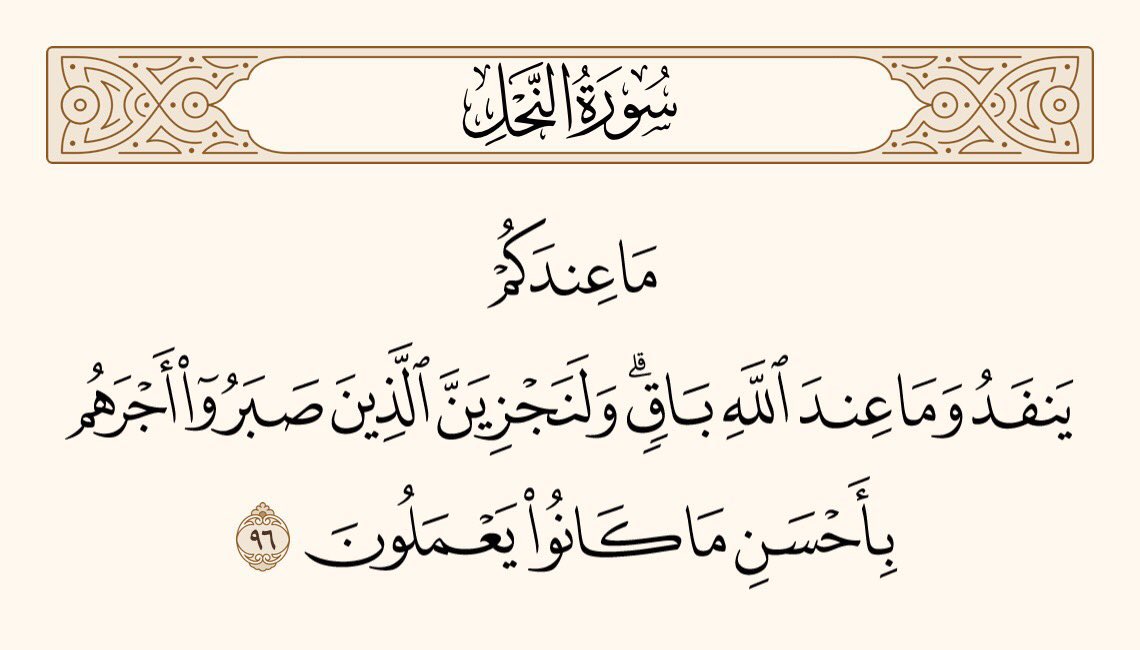 سُورَةُ النَّحْلِ
مَا عِندَكُمْ
يَنفَدُ وَمَا عِندَ ٱللَّهِ بَاقٍۗ وَلَنَجْزِيَنَّ ٱلَّذِينَ صَبَرُوٓا۟ أَجْرَهُم
بِأَحْسَنِ مَا كَانُوا۟ يَعْمَلُونَ ٩٦